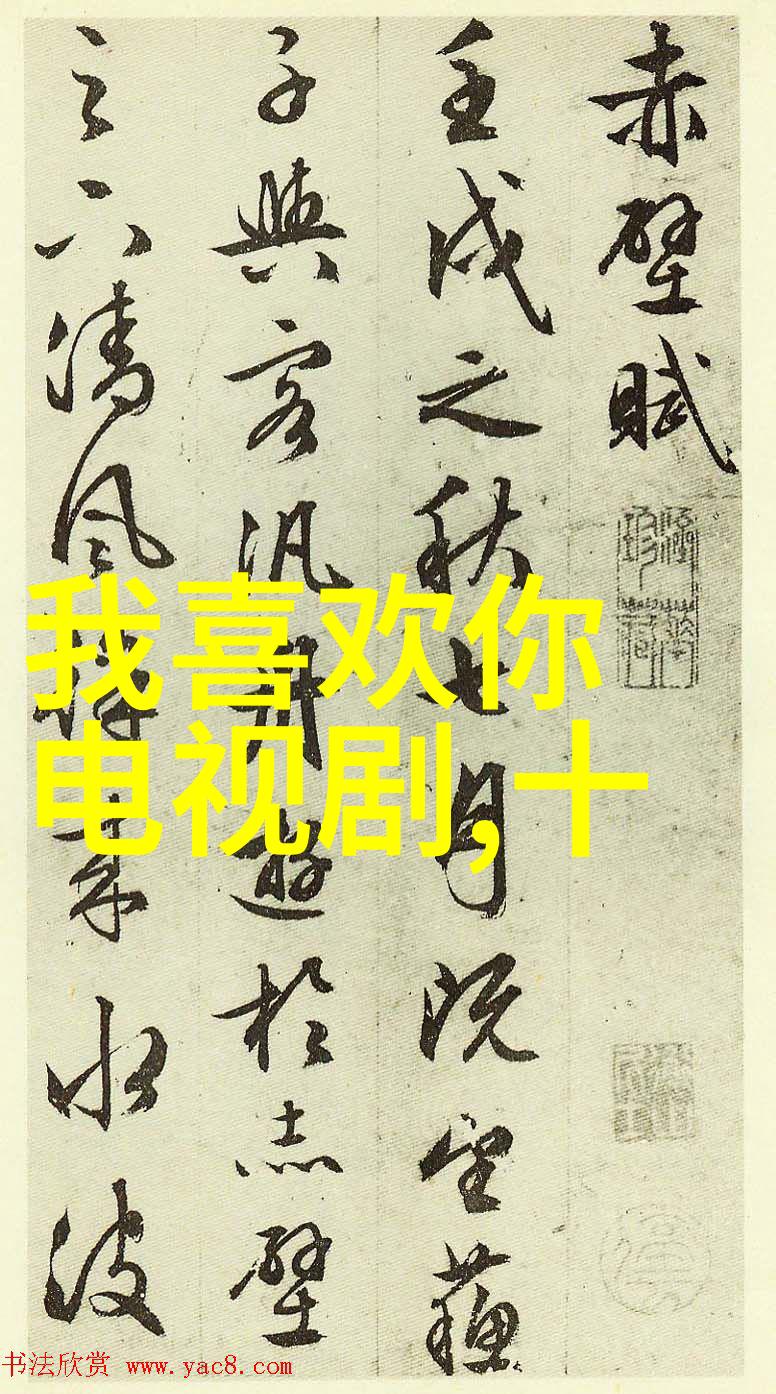 赤壁賦
壬戌之秋七月既望蘇
子與客汎舟遊於赤壁
之下清風徐來水波
我喜欢你
电视剧,十
书法欣赏 www.yac8.com